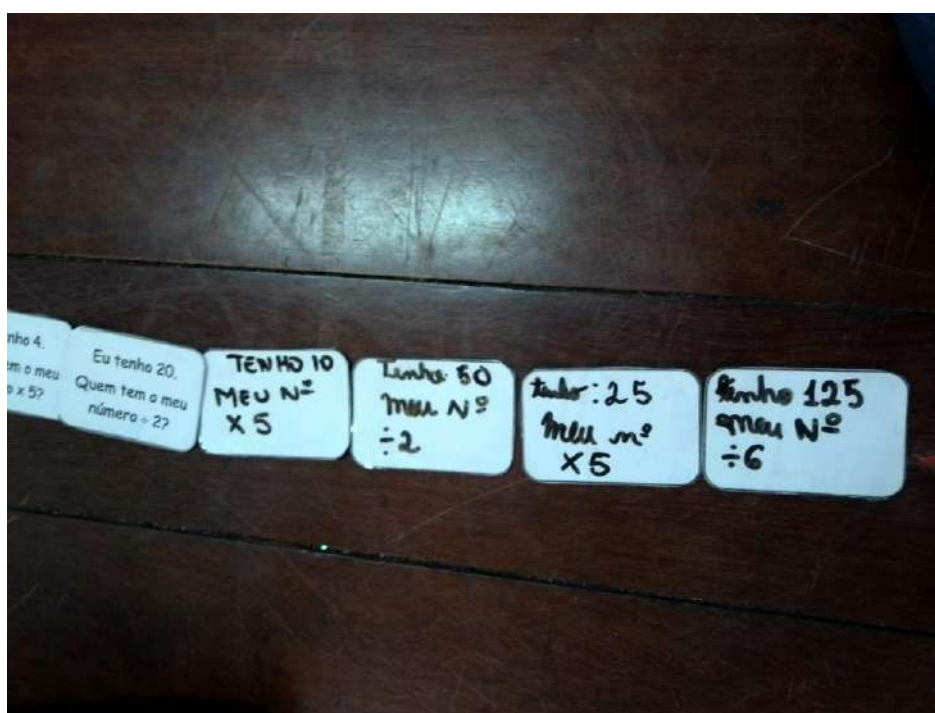 nho 4.
em o meu
o x 5?
Eu tenho 20.
Quem tem o meu
número ÷ 2?
TENHO 10
MEU Nº
X 5
Tenho 50
meu Nº
÷2
tenho: 25
Meu nº
X5
tenho 125
meu Nº
÷6